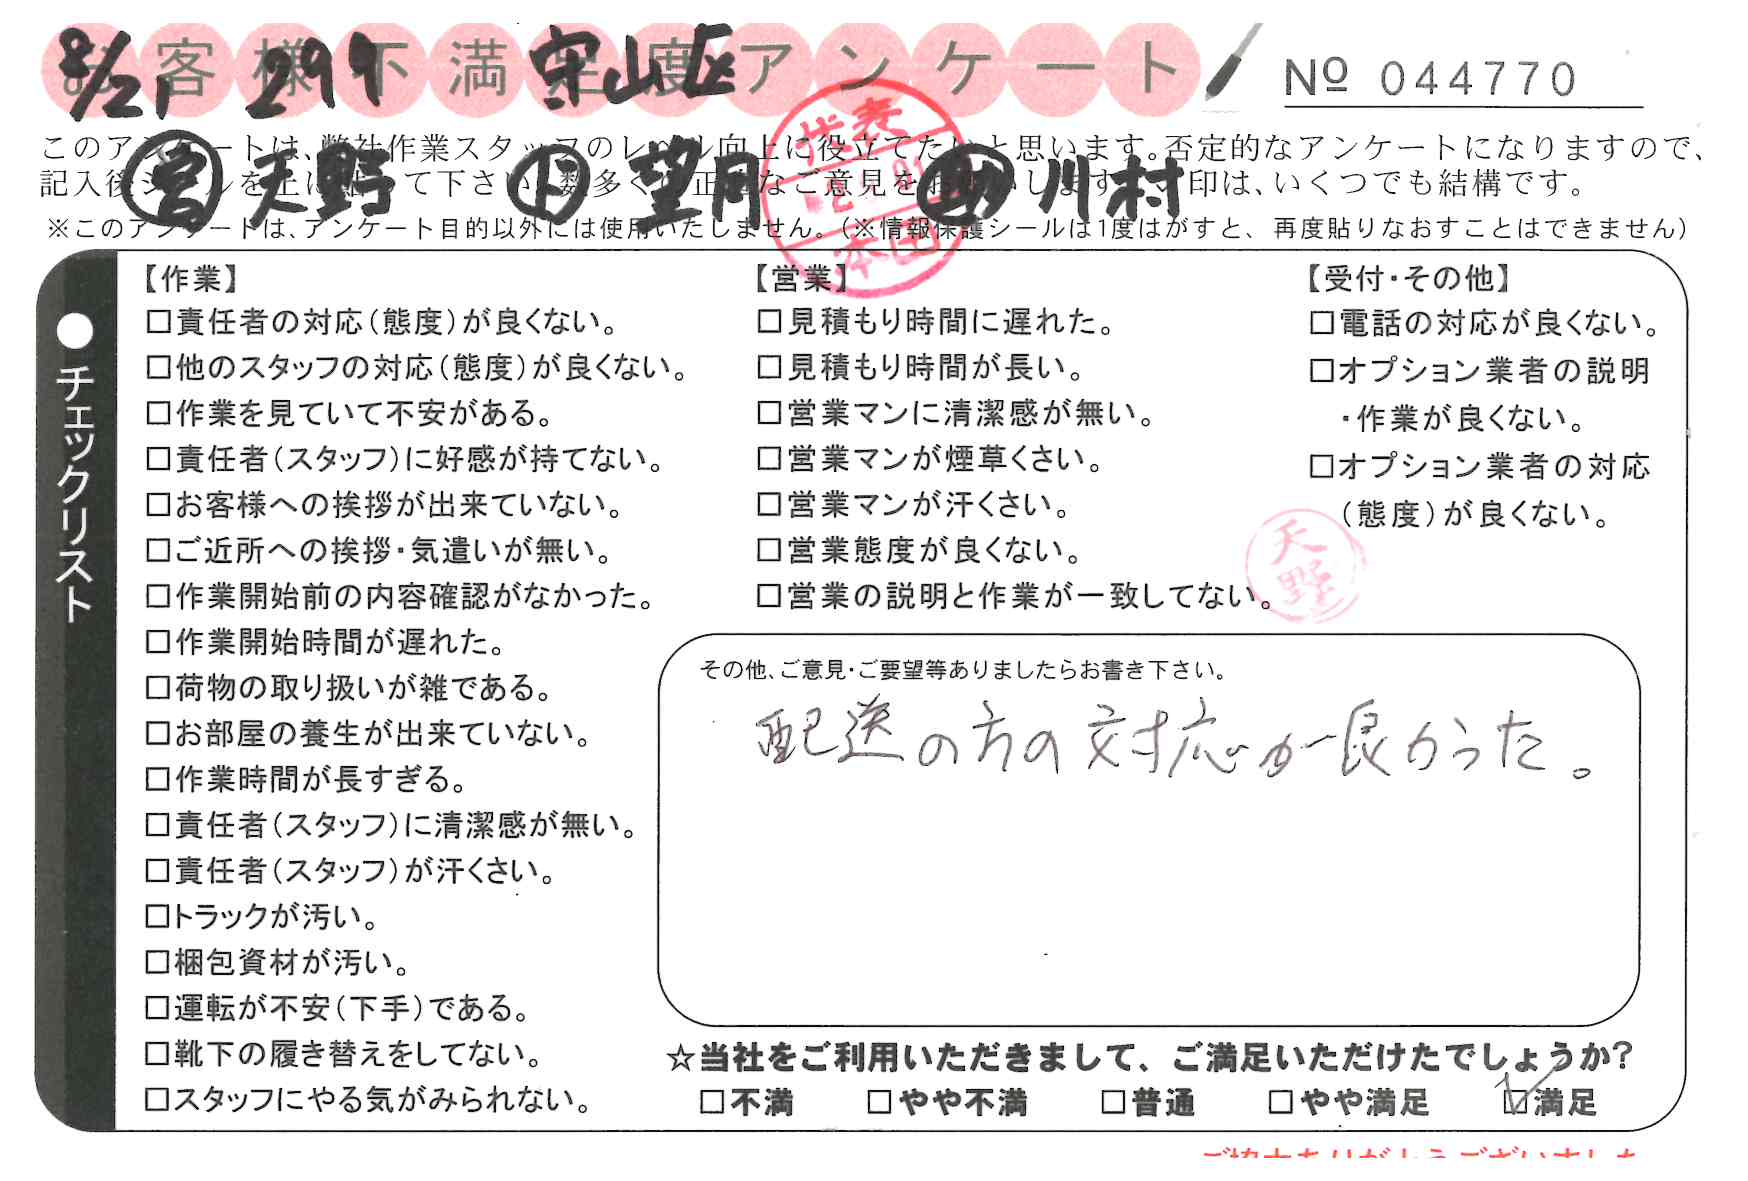 お客様不満足度アンケート
№ 044770
8/21 299 守山区
このアンケートは、弊社作業スタッフのレベル向上に役立てたいと思います。否定的なアンケートになりますので、
記入後シールを上に貼って下さい。数多くの正直なご意見をお願いします。レ印は、いくつでも結構です。
営 天野 望月 川村
※このアンケートは、アンケート目的以外には使用いたしません。(※情報保護シールは1度はがすと、再度貼りなおすことはできません)
代表
本田
●チェックリスト
【作業】
□責任者の対応(態度)が良くない。
□他のスタッフの対応(態度)が良くない。
□作業を見ていて不安がある。
□責任者(スタッフ)に好感が持てない。
□お客様への挨拶が出来ていない。
□ご近所への挨拶・気遣いが無い。
□作業開始前の内容確認がなかった。
□作業開始時間が遅れた。
□荷物の取り扱いが雑である。
□お部屋の養生が出来ていない。
□作業時間が長すぎる。
□責任者(スタッフ)に清潔感が無い。
□責任者(スタッフ)が汗くさい。
□トラックが汚い。
□梱包資材が汚い。
□運転が不安(下手)である。
□靴下の履き替えをしてない。
□スタッフにやる気がみられない。
【営業】
□見積もり時間に遅れた。
□見積もり時間が長い。
□営業マンに清潔感が無い。
□営業マンが煙草くさい。
□営業マンが汗くさい。
□営業態度が良くない。
□営業の説明と作業が一致してない。
【受付・その他】
□電話の対応が良くない。
□オプション業者の説明
・作業が良くない。
□オプション業者の対応
(態度)が良くない。
天野
その他、ご意見・ご要望等ありましたらお書き下さい。
配送の方の対応が良かった。
☆当社をご利用いただきまして、ご満足いただけたでしょうか?
□不満 □やや不満 □普通 □やや満足 ☑満足
ご協力ありがとうございました